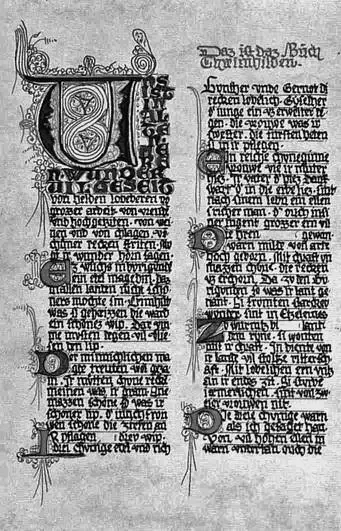 UNS
IST IN
AL
TE
N ME
REN
WUNDER
VIL GESEIT
von helden lobeberen vo
grozer arbeit. von vreude
vnd hochgeziten. von wei
nen vnd von chlagen. vo
chuner recken striten. Mv
get ir wunder horn sagen.
Ez wuchs in Burgunde
ein edel magedin. daz
in allen landen niht sche
ners mohte sin. Crimhilt
was si geheizzen die ward
ein schonez wip. Dar vm
be mvsten degen vil vlie
sen den lip.
Der minnichlichen ma
ge treuten wol gezam
in. ir mvtten chune recke
niemen was ir gram. Ane
mazzen schone so was ir
schoner lip. d iunchfrou
wen schone die zierten an
Ir pflagen driev wip.
driei chunige edel vnd rich
Daz ist daz Buch
Chreimhilden.
Gunther vnde Gernot di
recken lobelich. Gyselher
d iunge ein uz erwelter de
gen. die vrouwe was ir
swester. die fursten heten
si in ir pflegen.
Ein reiche chuneginne
vrouwe vte ir muter
hiez. ir vater d hiez danch
wart d in die erbe liez. sint
nach sinem lebn ein ellen
tricher man. d ouch in si
ner iugent grozzer ern vil
Die hren gewan.
warn milte von arte
hoch geborn. Mit chraft vn
mazzen chune. die recken
uz erchorn. Da zu den Bu
rgunden so was ir lant ge
nant. Si frumten starchev
wunder. sint in Etzelenlas
Ze wurmtz bi lant
dem ryne. si wonten
mit ir chraft. In diente von
ir lande vil stoltze ritersch
aft. Mit lobelichen ern vntz
an ir endes zit. Si sturbe
iamerlichen. sint von zwe
ier vrouwen nit.
Die drie chunige warn
als ich gesaget han
von vil hohen ellen in
warn vntertan ouch die